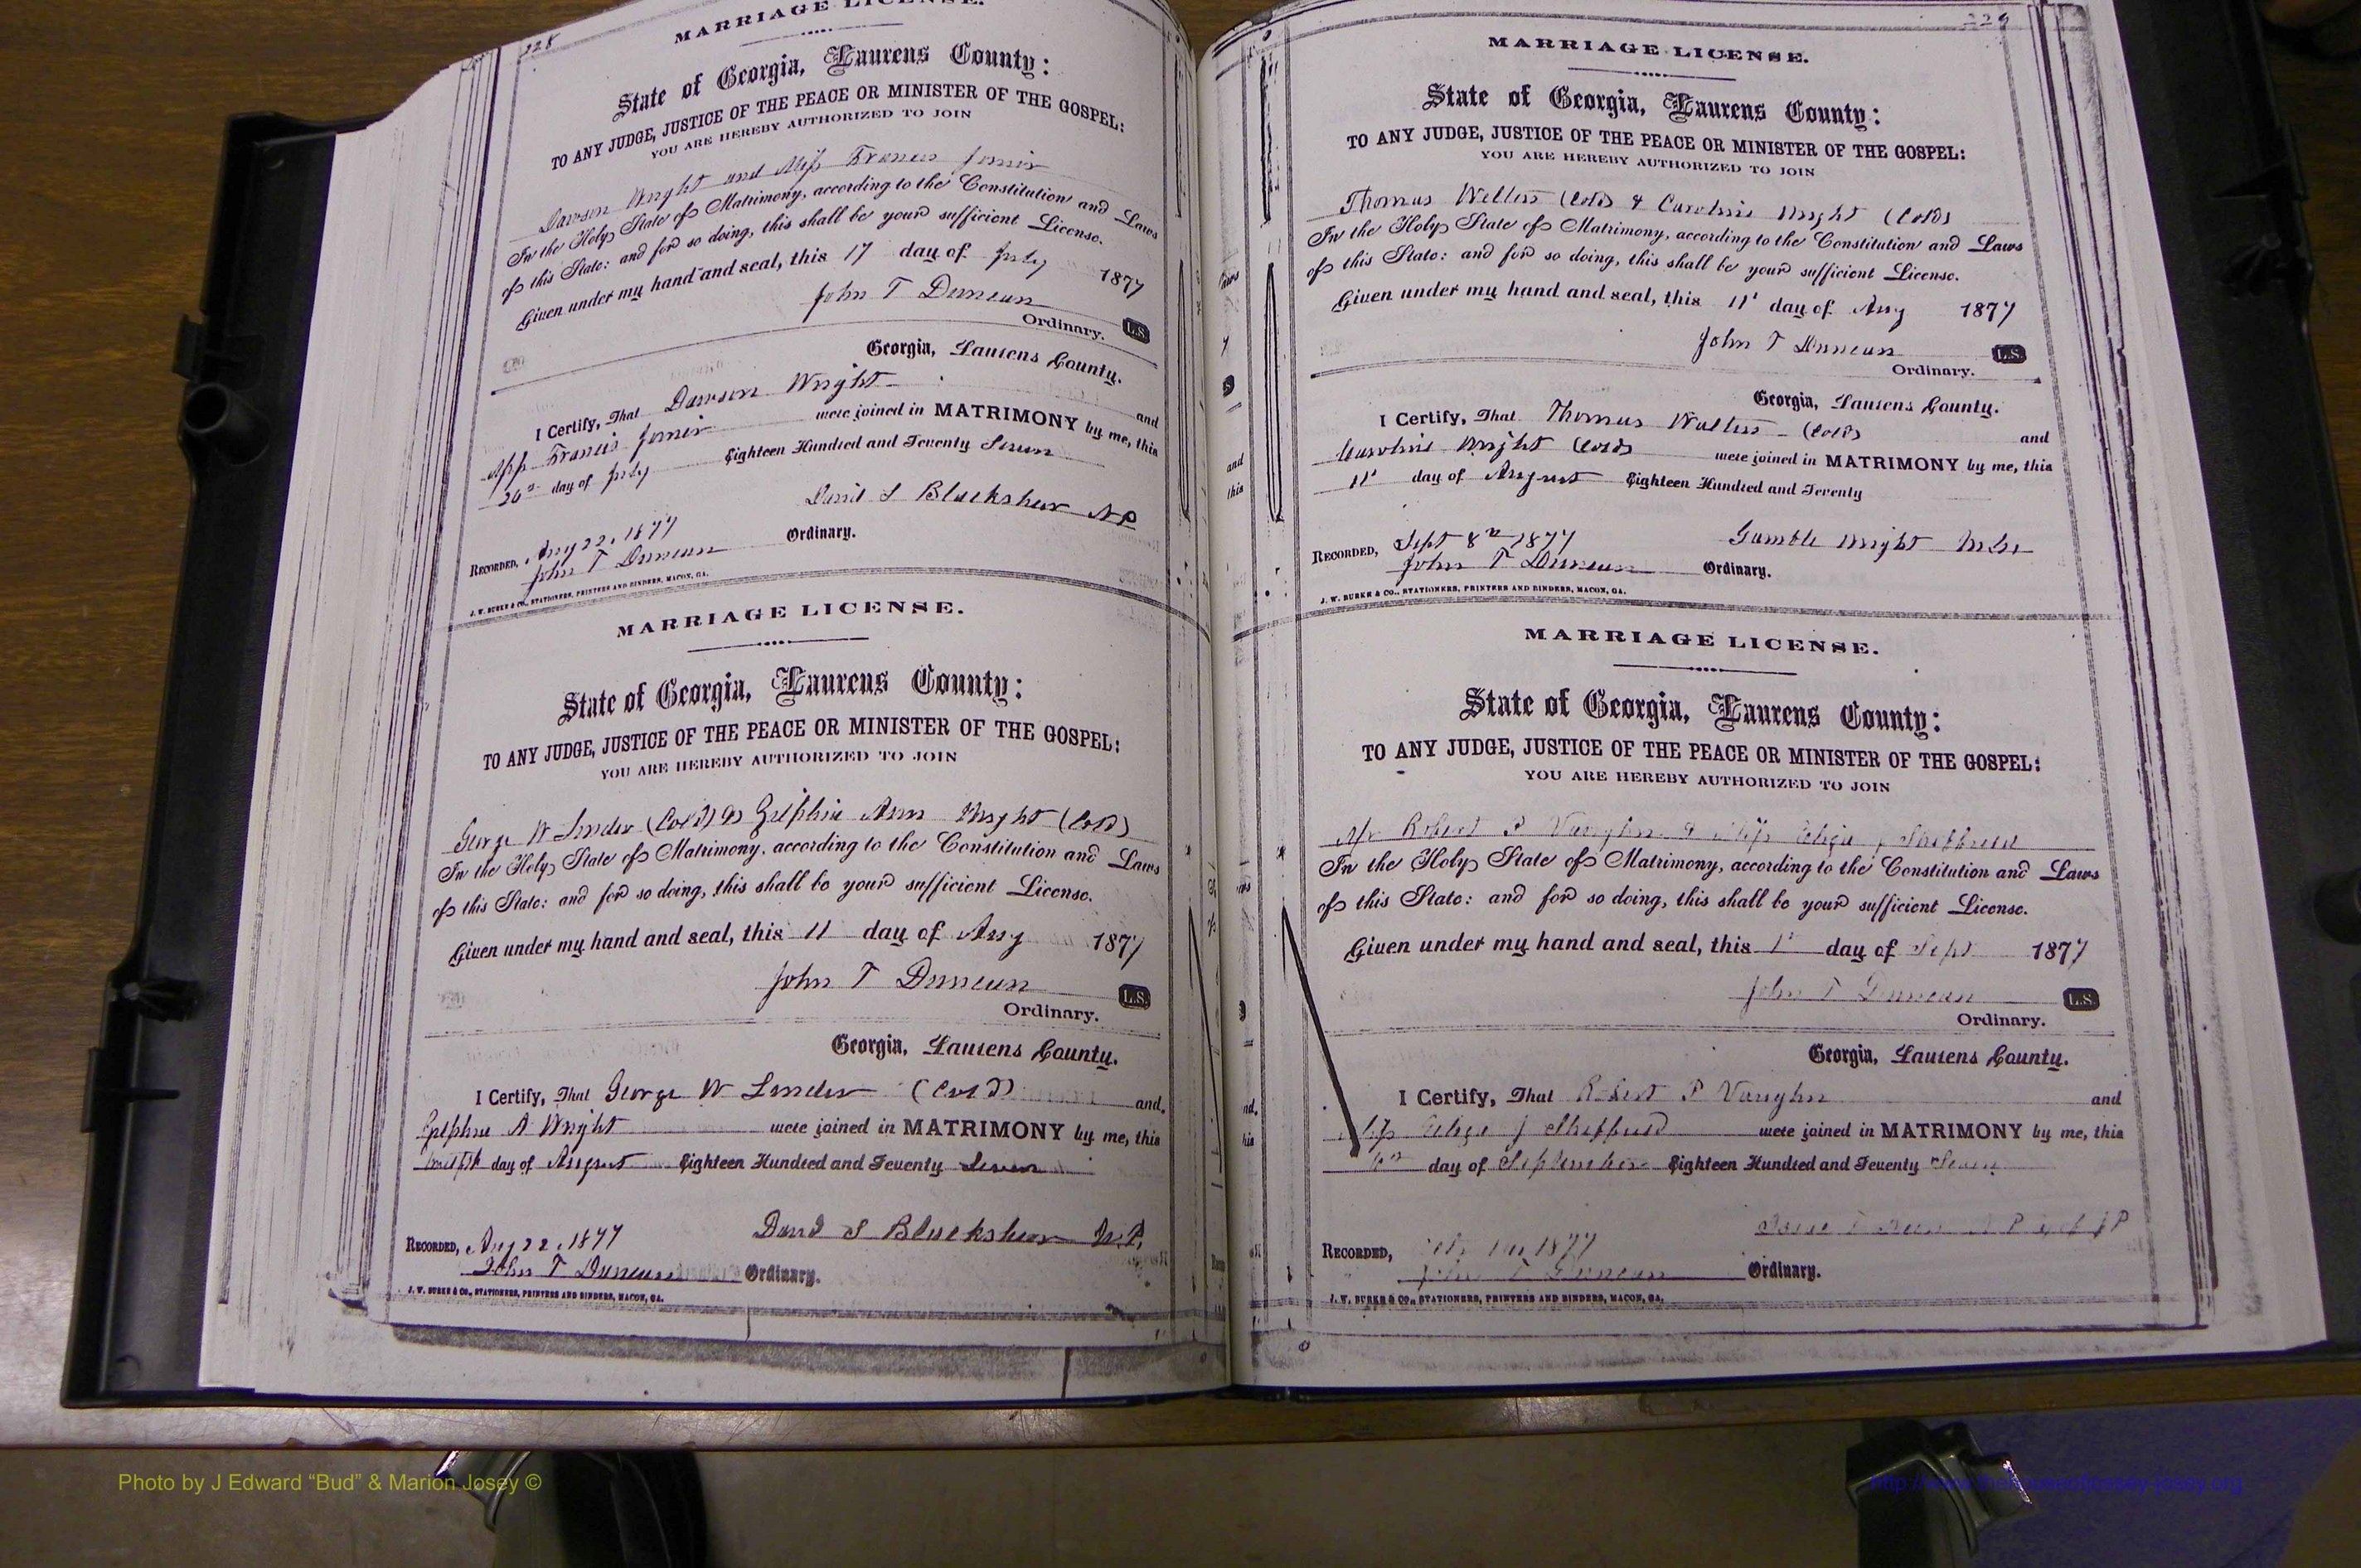 228
MARRIAGE LICENSE.
State of Georgia, Laurens County:
TO ANY JUDGE, JUSTICE OF THE PEACE OR MINISTER OF THE GOSPEL:
YOU ARE HEREBY AUTHORIZED TO JOIN
Dawson Wright and Miss Francis Joiner
In the Holy State of Matrimony, according to the Constitution and Laws
of this State: and for so doing, this shall be your sufficient License.
Given under my hand and seal, this 17 day of July 1877
John T Duncan
Ordinary. L.S.
Georgia, Laurens County.
I Certify, That Dawson Wright and
Miss Francis Joiner were joined in MATRIMONY by me, this
20th day of July Eighteen Hundred and Seventy Seven
David S Blackshear NP
RECORDED, Aug 22, 1877
John T Duncan Ordinary.
J. W. BURKE & CO., STATIONERS, PRINTERS AND BINDERS, MACON, GA.
MARRIAGE LICENSE.
State of Georgia, Laurens County:
TO ANY JUDGE, JUSTICE OF THE PEACE OR MINISTER OF THE GOSPEL:
YOU ARE HEREBY AUTHORIZED TO JOIN
George W Linder (Col'd) & Zilphia Ann Wright (Col'd)
In the Holy State of Matrimony, according to the Constitution and Laws
of this State: and for so doing, this shall be your sufficient License.
Given under my hand and seal, this 11 day of Aug 1877
John T Duncan
Ordinary. L.S.
Georgia, Laurens County.
I Certify, That George W Linder (Col'd) and,
A Wright were joined in MATRIMONY by me, this
day of August Eighteen Hundred and Seventy Seven
David S Blackshear N.P.
RECORDED, Aug 22, 1877
John T Duncan Ordinary.
J. W. BURKE & CO., STATIONERS, PRINTERS AND BINDERS, MACON, GA.
229
MARRIAGE LICENSE.
State of Georgia, Laurens County:
TO ANY JUDGE, JUSTICE OF THE PEACE OR MINISTER OF THE GOSPEL:
YOU ARE HEREBY AUTHORIZED TO JOIN
Thomas (Cold) & Caroline Wright (Cold)
In the Holy State of Matrimony, according to the Constitution and Laws
of this State: and for so doing, this shall be your sufficient License.
Given under my hand and seal, this 11' day of Aug 1877
John T Duncan
Ordinary. L.S.
Georgia, Laurens County.
I Certify, That Thomas (Cold) and
Caroline Wright (Cold) were joined in MATRIMONY by me, this
11' day of August Eighteen Hundred and Seventy
Gamble Wright
RECORDED, Sept 8th 1877
John T Duncan Ordinary.
J. W. BURKE & CO., STATIONERS, PRINTERS AND BINDERS, MACON, GA.
MARRIAGE LICENSE.
State of Georgia, Laurens County:
TO ANY JUDGE, JUSTICE OF THE PEACE OR MINISTER OF THE GOSPEL:
YOU ARE HEREBY AUTHORIZED TO JOIN
Mr Robert P Vaughn & Miss Eliza J Sheffield
In the Holy State of Matrimony, according to the Constitution and Laws
of this State: and for so doing, this shall be your sufficient License.
Given under my hand and seal, this 1st day of Sept 1877
John T Duncan
Ordinary. L.S.
Georgia, Laurens County.
I Certify, That Robert P Vaughn and
Miss Eliza J Sheffield were joined in MATRIMONY by me, this
day of September Eighteen Hundred and Seventy Seven
RECORDED, 1877
John T Duncan Ordinary.
J. W. BURKE & CO., STATIONERS, PRINTERS AND BINDERS, MACON, GA.
Photo by J Edward “Bud” & Marion Josey ©
http://www.thehouseofjossey-josey.org